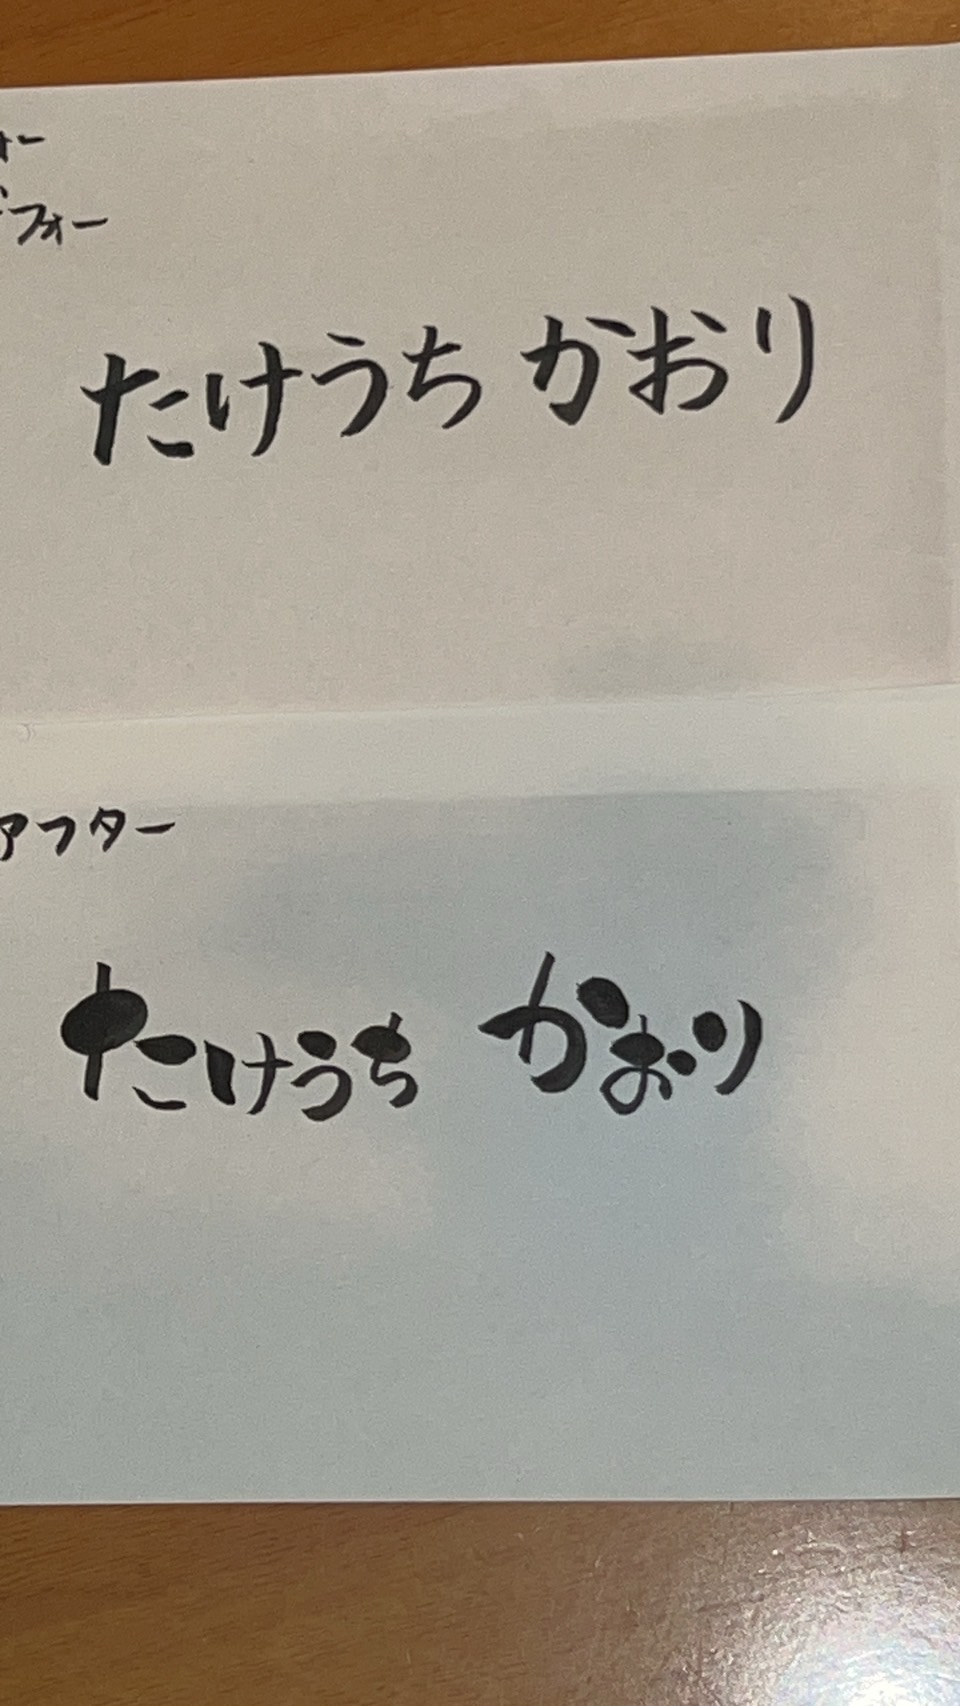 フォー
たけうち かおり
アフター
たけうち かおり